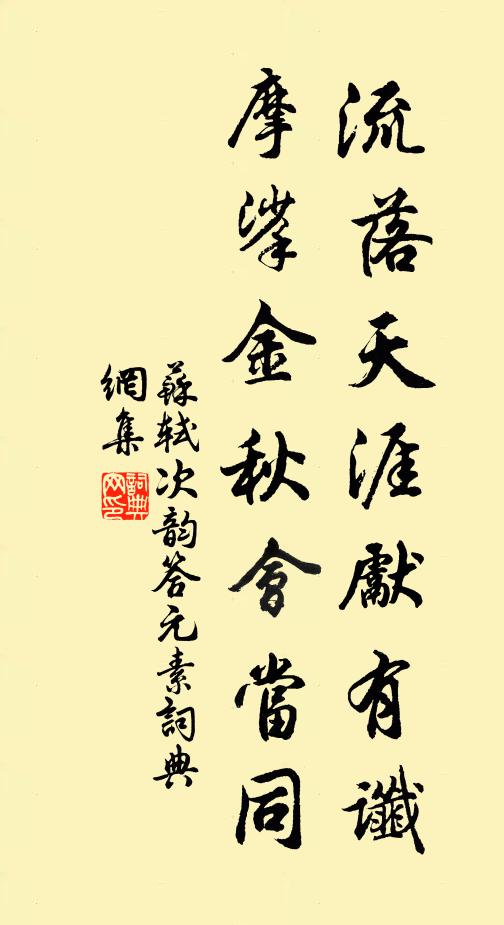 流落天涯獻有讖
摩挲金秋會當同
蘇軾次韵答元素詞典
網集
詞典
网印